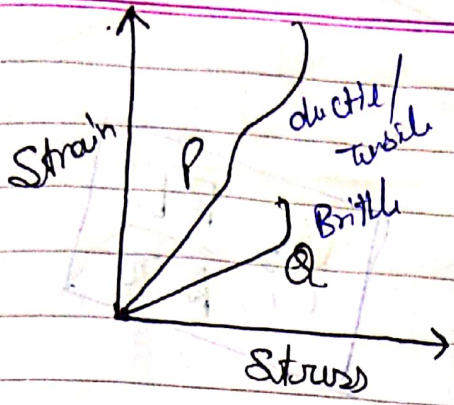 Strain
P
ductile/
Tensile
Brittle
Q
Stress